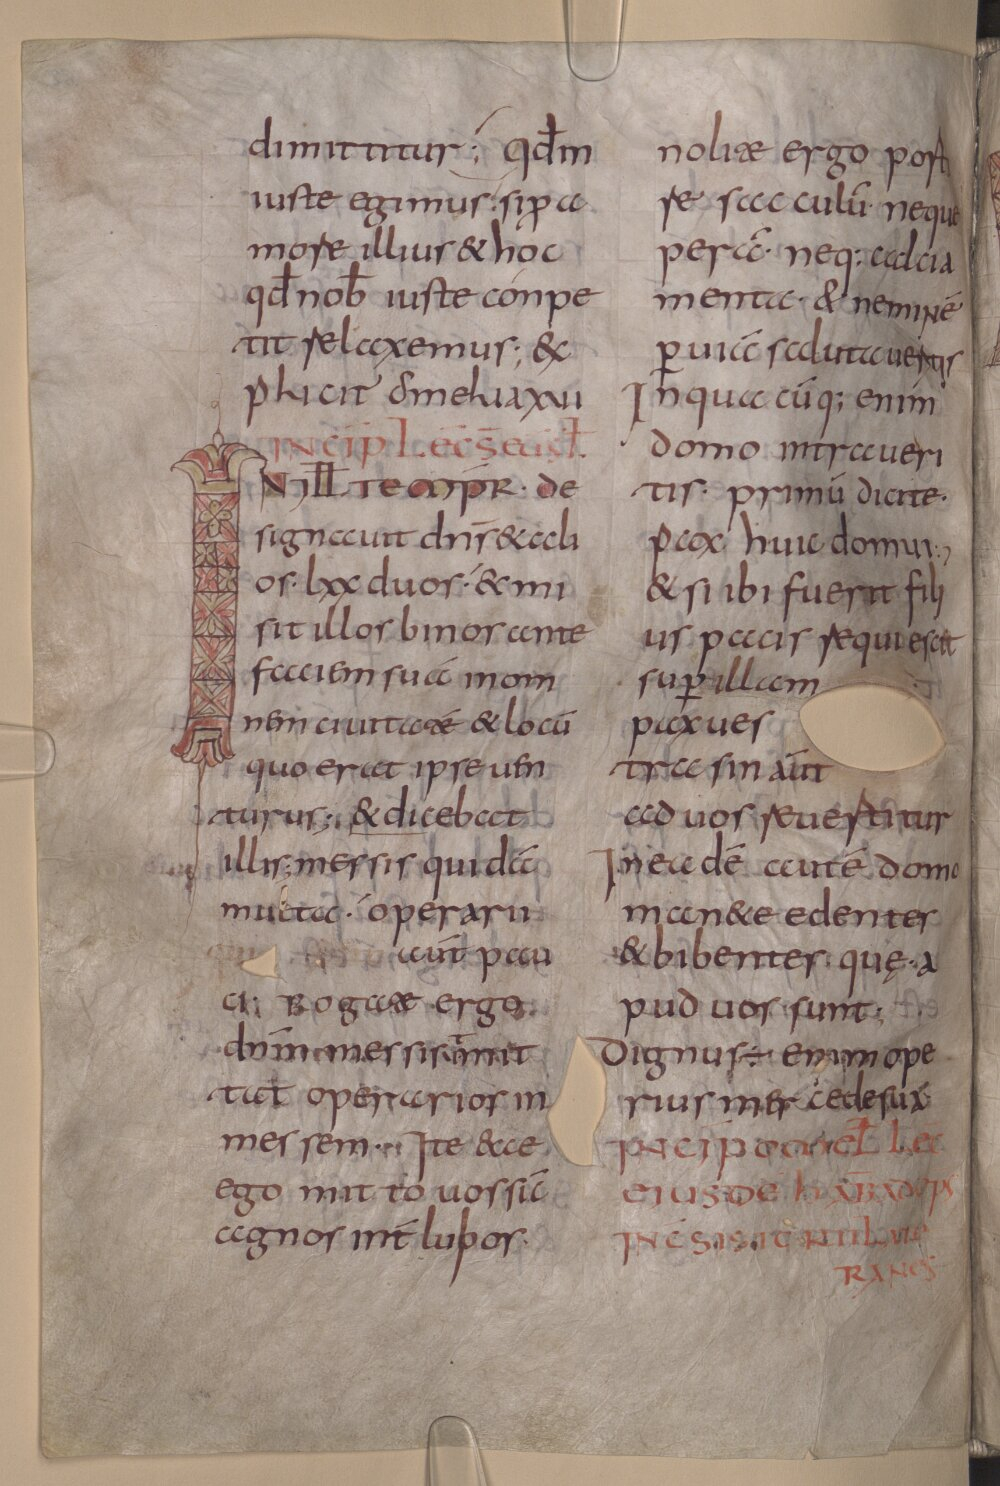 dimittitur; qđm
iuste egimus. si p̱ ca
mose illius & hoc
qđ nob̄ iuste conpe
tit relaxemus; &x
plicit
INCIP LEC̄
IN ILL TEMPR. de
signauit dn̄s & ali
os. lxx duos. & mi
sit illos binos ante
faciem suā in om
nem ciuitatē & locū
quo erat ipse uen
turus; & dicebat
illis; messis quidā
multa. operarii
aūt pau
ci; Rogate ergo
dnm̄ messis ut mit
tat operarios in
messem. Ite & ce
ego mitto uos sic̄
agnos int̄ lupos.
nolite ergo port
re sacculū. neque
perā. neq: calcia
menta. & neminē
p̱ uiā salutaueritis
In qua cūq; enim
domo intraueri
tis. primū dicite.
pax huic domui;
& si ibi fuerit fili
us pacis requiescet
sup̱ illam
pax ues
tra sin aūt
ad uos reuertitur
In ea dē autē domo
man&e edentes
& bibentes quę. a
pud uos sunt;
Dignus ÷ enim ope
rius mercede sua
INCIP LEC̄
EIUSDE